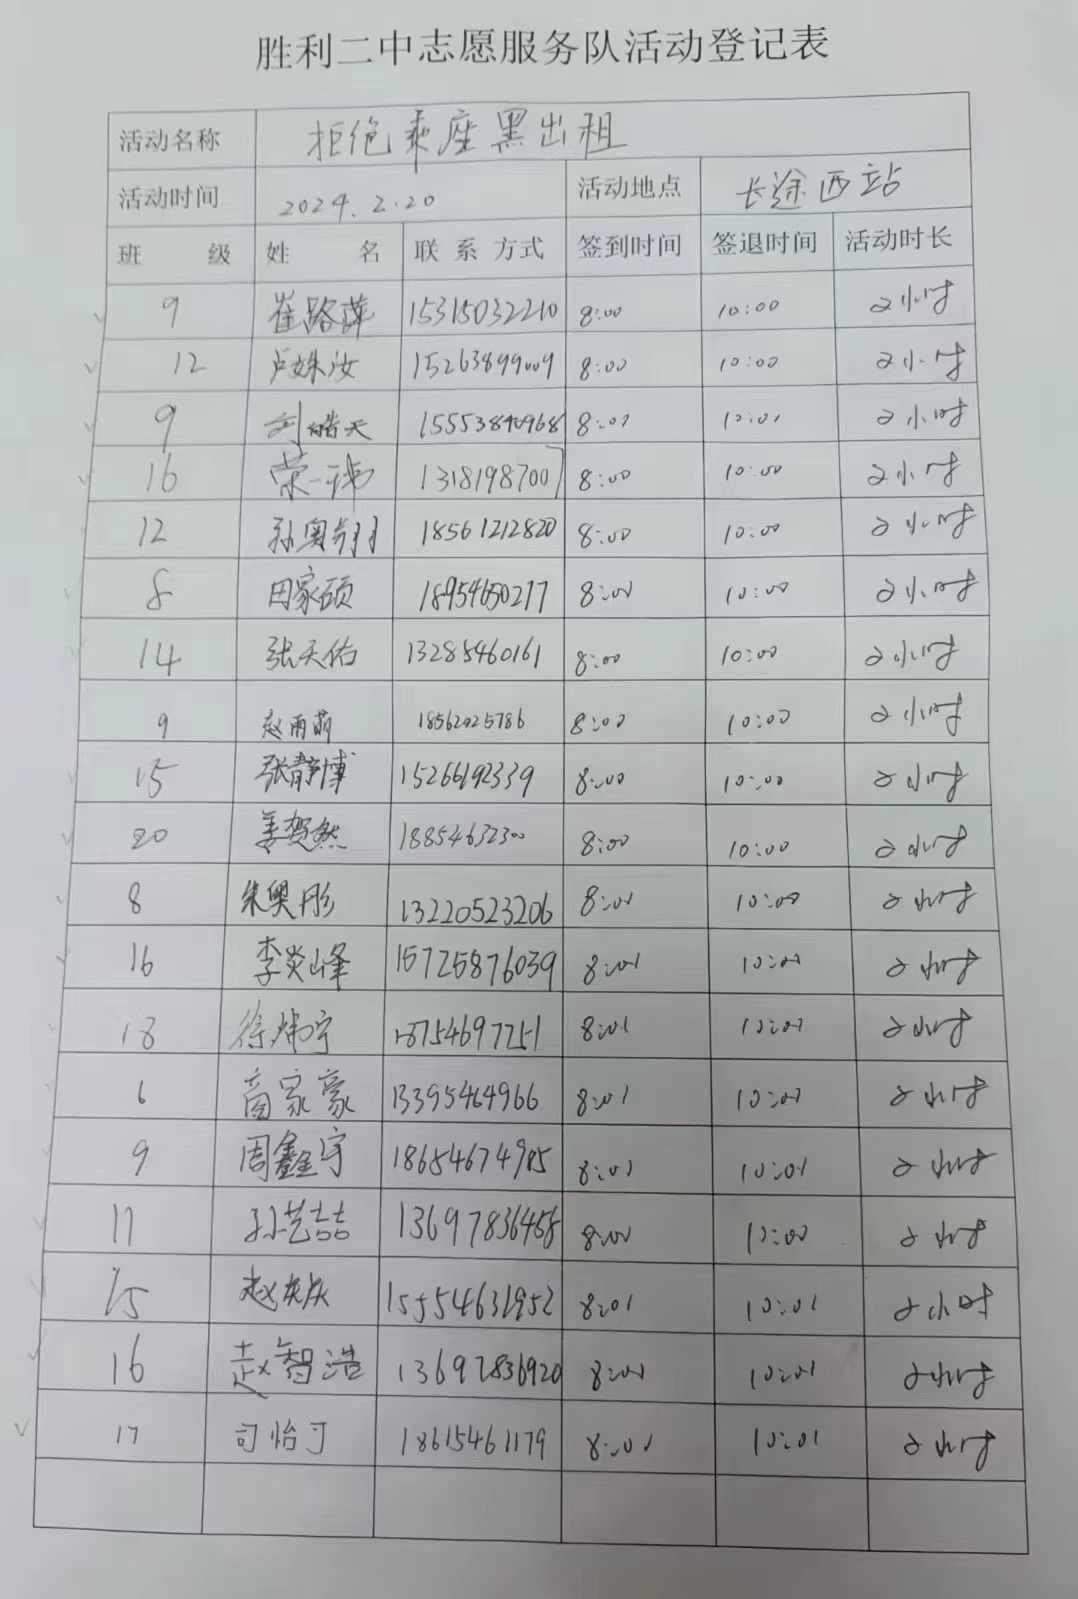 胜利二中志愿服务队活动登记表
活动名称 拒绝乘座黑出租
活动时间 2024.2.20 活动地点 长途西站
班 级 姓 名 联系方式 签到时间 签退时间 活动时长
9 崔路萍 15315032210 8:00 10:00 2小时
12 卢姝汝 15263899009 8:00 10:00 2小时
9 刘皓天 15553840968 8:01 10:01 2小时
16 荣一玮 13181987007 8:00 10:00 2小时
12 孙奥翔 18561212820 8:00 10:00 2小时
8 田家硕 18954650277 8:00 10:00 2小时
14 张天佑 13285460161 8:00 10:00 2小时
9 赵雨萌 18562025786 8:00 10:00 2小时
15 张静博 15266192339 8:00 10:00 2小时
20 姜贺然 1885463230 8:00 10:00 2小时
8 朱奥彤 13220523206 8:01 10:00 2小时
16 李炎峰 15725876039 8:01 10:01 2小时
18 徐炜宁 13754697251 8:01 10:01 2小时
6 商家豪 13395464966 8:01 10:01 2小时
9 周鑫宇 18654674985 8:01 10:01 2小时
17 孙艺喆 13697836458 8:00 10:00 2小时
15 赵 15554631952 8:01 10:01 2小时
16 赵智浩 13697836920 8:01 10:01 2小时
17 司怡可 18615461179 8:01 10:01 2小时